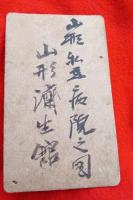 山形縣立病院之図
山形濟生館